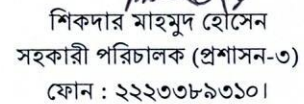 শিকদার মাহমুদ হোসেন
সহকারী পরিচালক (প্রশাসন-৩)
ফোন : ২২২৩৩৮৯৩১০।